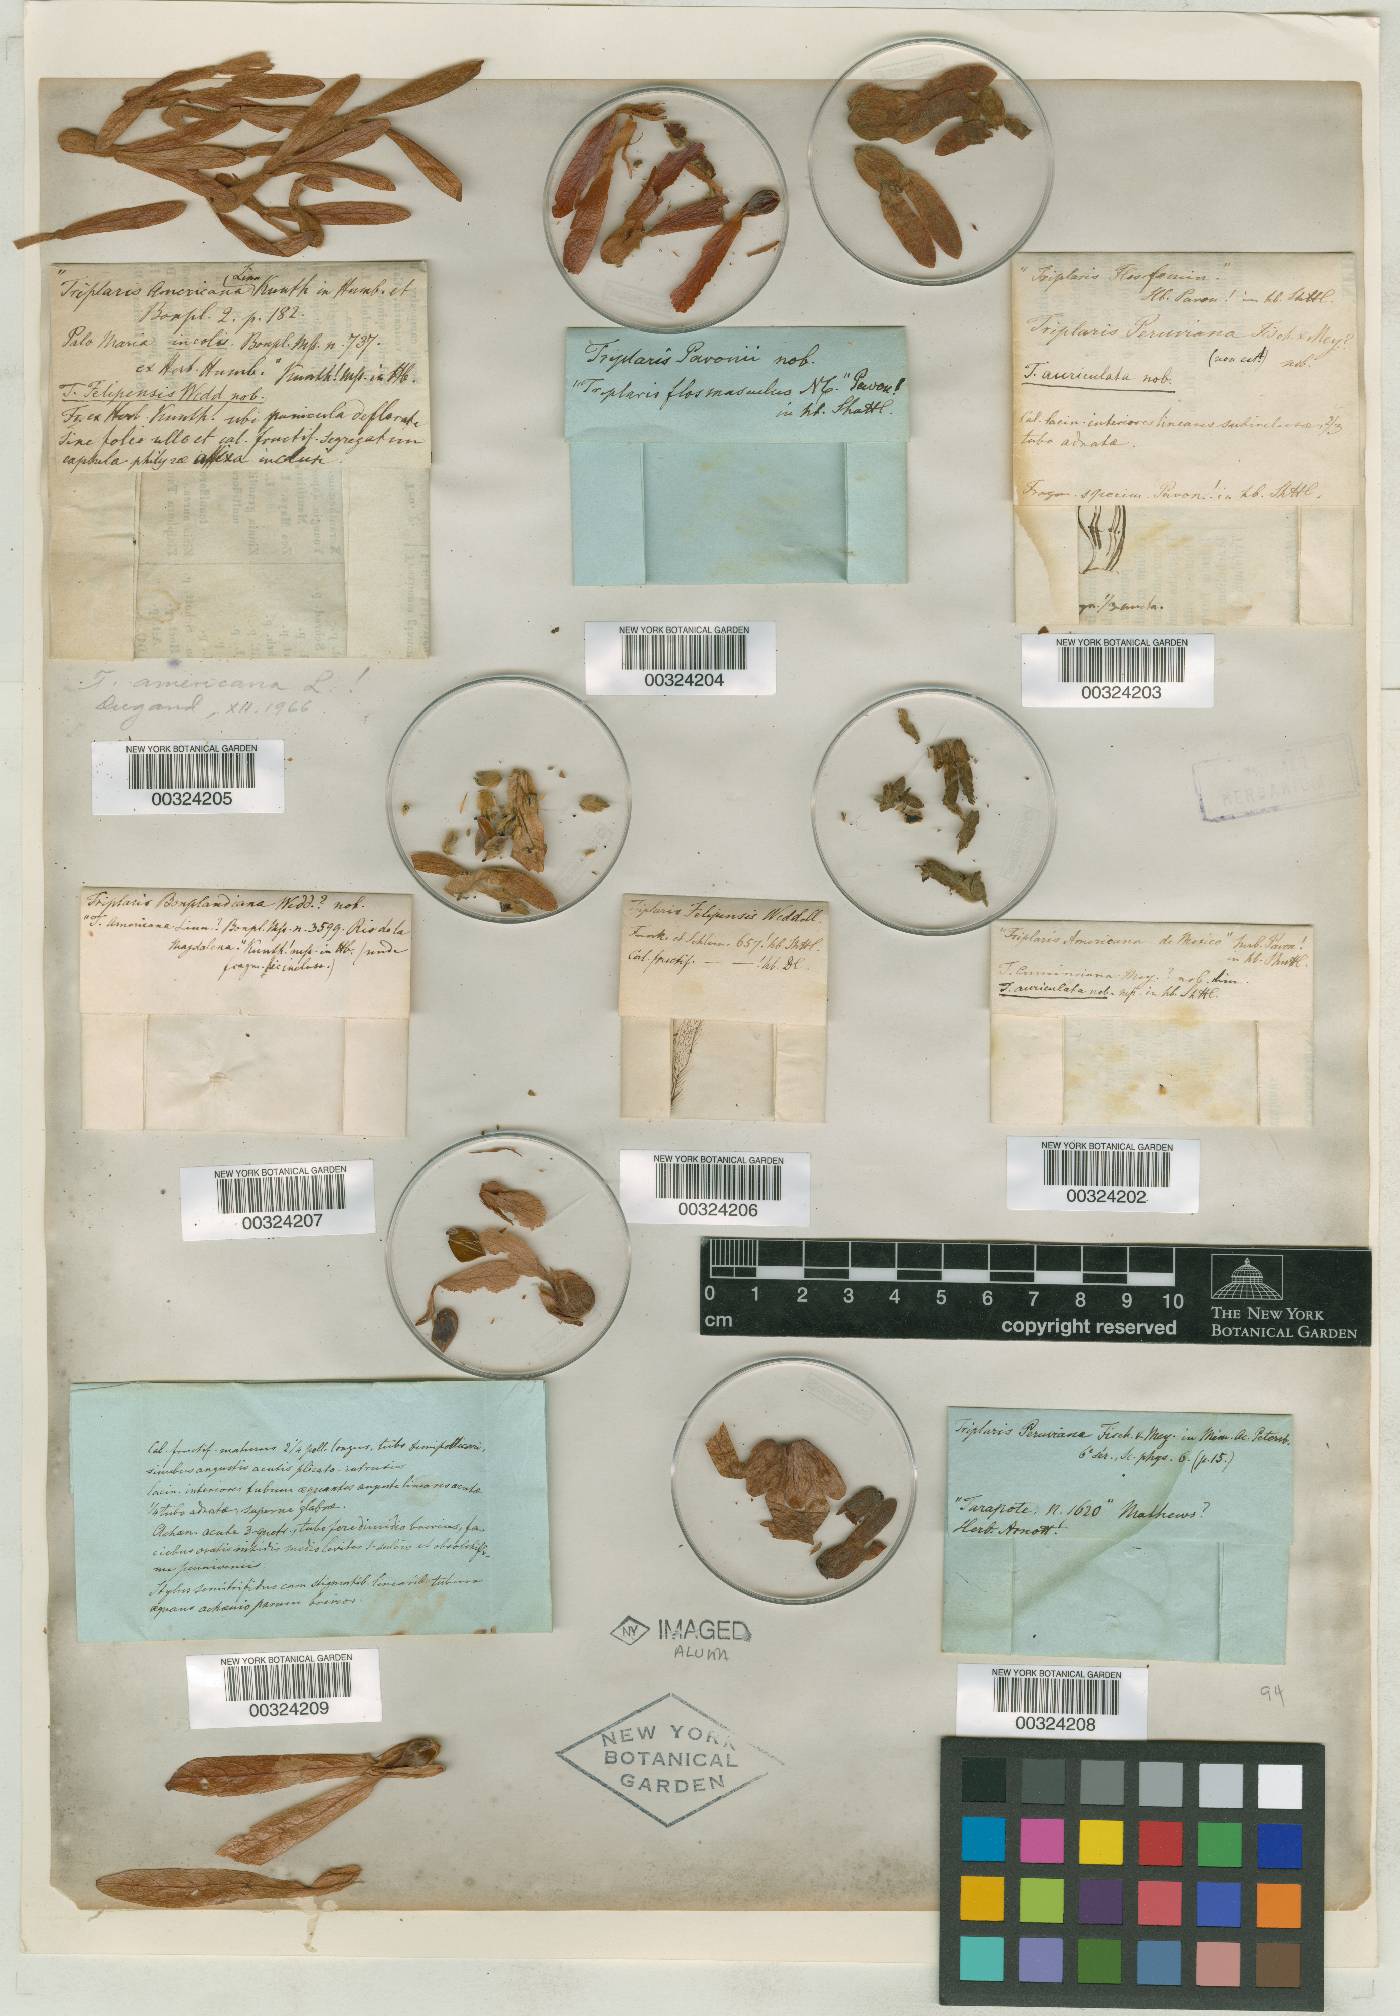 "Triplaris Americana (Linn Kunth in Humb. et
Bonpl. 2. p. 182.
Palo Maria incolis. Bonpl. Msp. n. 737.
ex Herb. Humb." Kunth! Msp. in Hb.
T. Felipensis Wedd nob.
Fr. ex Herb. Kunth! ubi panicula deflorata
sine folio ullo et cal. fructif. segregatum
capsula philyræ affixa inclusi.
T. americana L.!
Dugand, XII.1966
NEW YORK BOTANICAL GARDEN
00324205
Triplaris Pavonii nob.
"Triplaris flosmasculus NE." Pavon!
in hb. Shuttl.
NEW YORK BOTANICAL GARDEN
00324204
"Triplaris Flosfoemin."
Hb. Pavon! in hb. Shuttl.
Triplaris Peruviana Fisch & Mey?
(non est!) nob.
T. auriculata nob.
Cal. lacin. interiores lineares
tubo adnatæ.
Fragm. specim. Pavon! in hb. Shuttl.
NEW YORK BOTANICAL GARDEN
00324203
HERBARIUM
Triplaris Bonplandiana Wedd.? nob.
"T. Americana Linn? Bonpl. Msp. n. 3599. Rio de la
Magdalena." Kunth! msp. in Hb. (unde
fragm. hic inclusa.)
NEW YORK BOTANICAL GARDEN
00324207
Triplaris Felipensis Weddell.
Funk. et Schlim. 657! hb. Shuttl.
Cal. fructif. — —! hb. DC.
NEW YORK BOTANICAL GARDEN
00324206
"Triplaris Americana de Mexico" herb. Pavon!
in hb. Shuttl.
T. Cuminciana Mey.? nob. dim.
T. auriculata nob. msp. in hb. Shuttl.
NEW YORK BOTANICAL GARDEN
00324202
0 1 2 3 4 5 6 7 8 9 10
cm
copyright reserved
THE NEW YORK
BOTANICAL GARDEN
Cal. fructif. maturus 2 1/4 poll. longus, tubo semipollicari,
sinubus angustis acutis plicato-intrusis
lacin. interiores tubum æquantes anguste lineares acutæ
1/3 tubo adnatæ, superne glabræ.
Achæn. acute 3-quetr., tubo fere dimidio brevius, fa-
ciebus ovatis nitidis medio leviter 1-sulco et obsoletissi-
me penniveniis
Stylus semitrifidus cum stigmatib. linearib. tubum
æquans achænio parum brevior.
NEW YORK BOTANICAL GARDEN
00324209
NY IMAGED
ALUKA
NEW YORK
BOTANICAL
GARDEN
Triplaris Peruviana Fisch. & Mey. in Mém. Ac. Petersb.
6e Sér., Sc. phys. 6. (p. 15.)
"Tarapote. n. 1620" Mathews?
Herb. Arnott!
NEW YORK BOTANICAL GARDEN
00324208
94